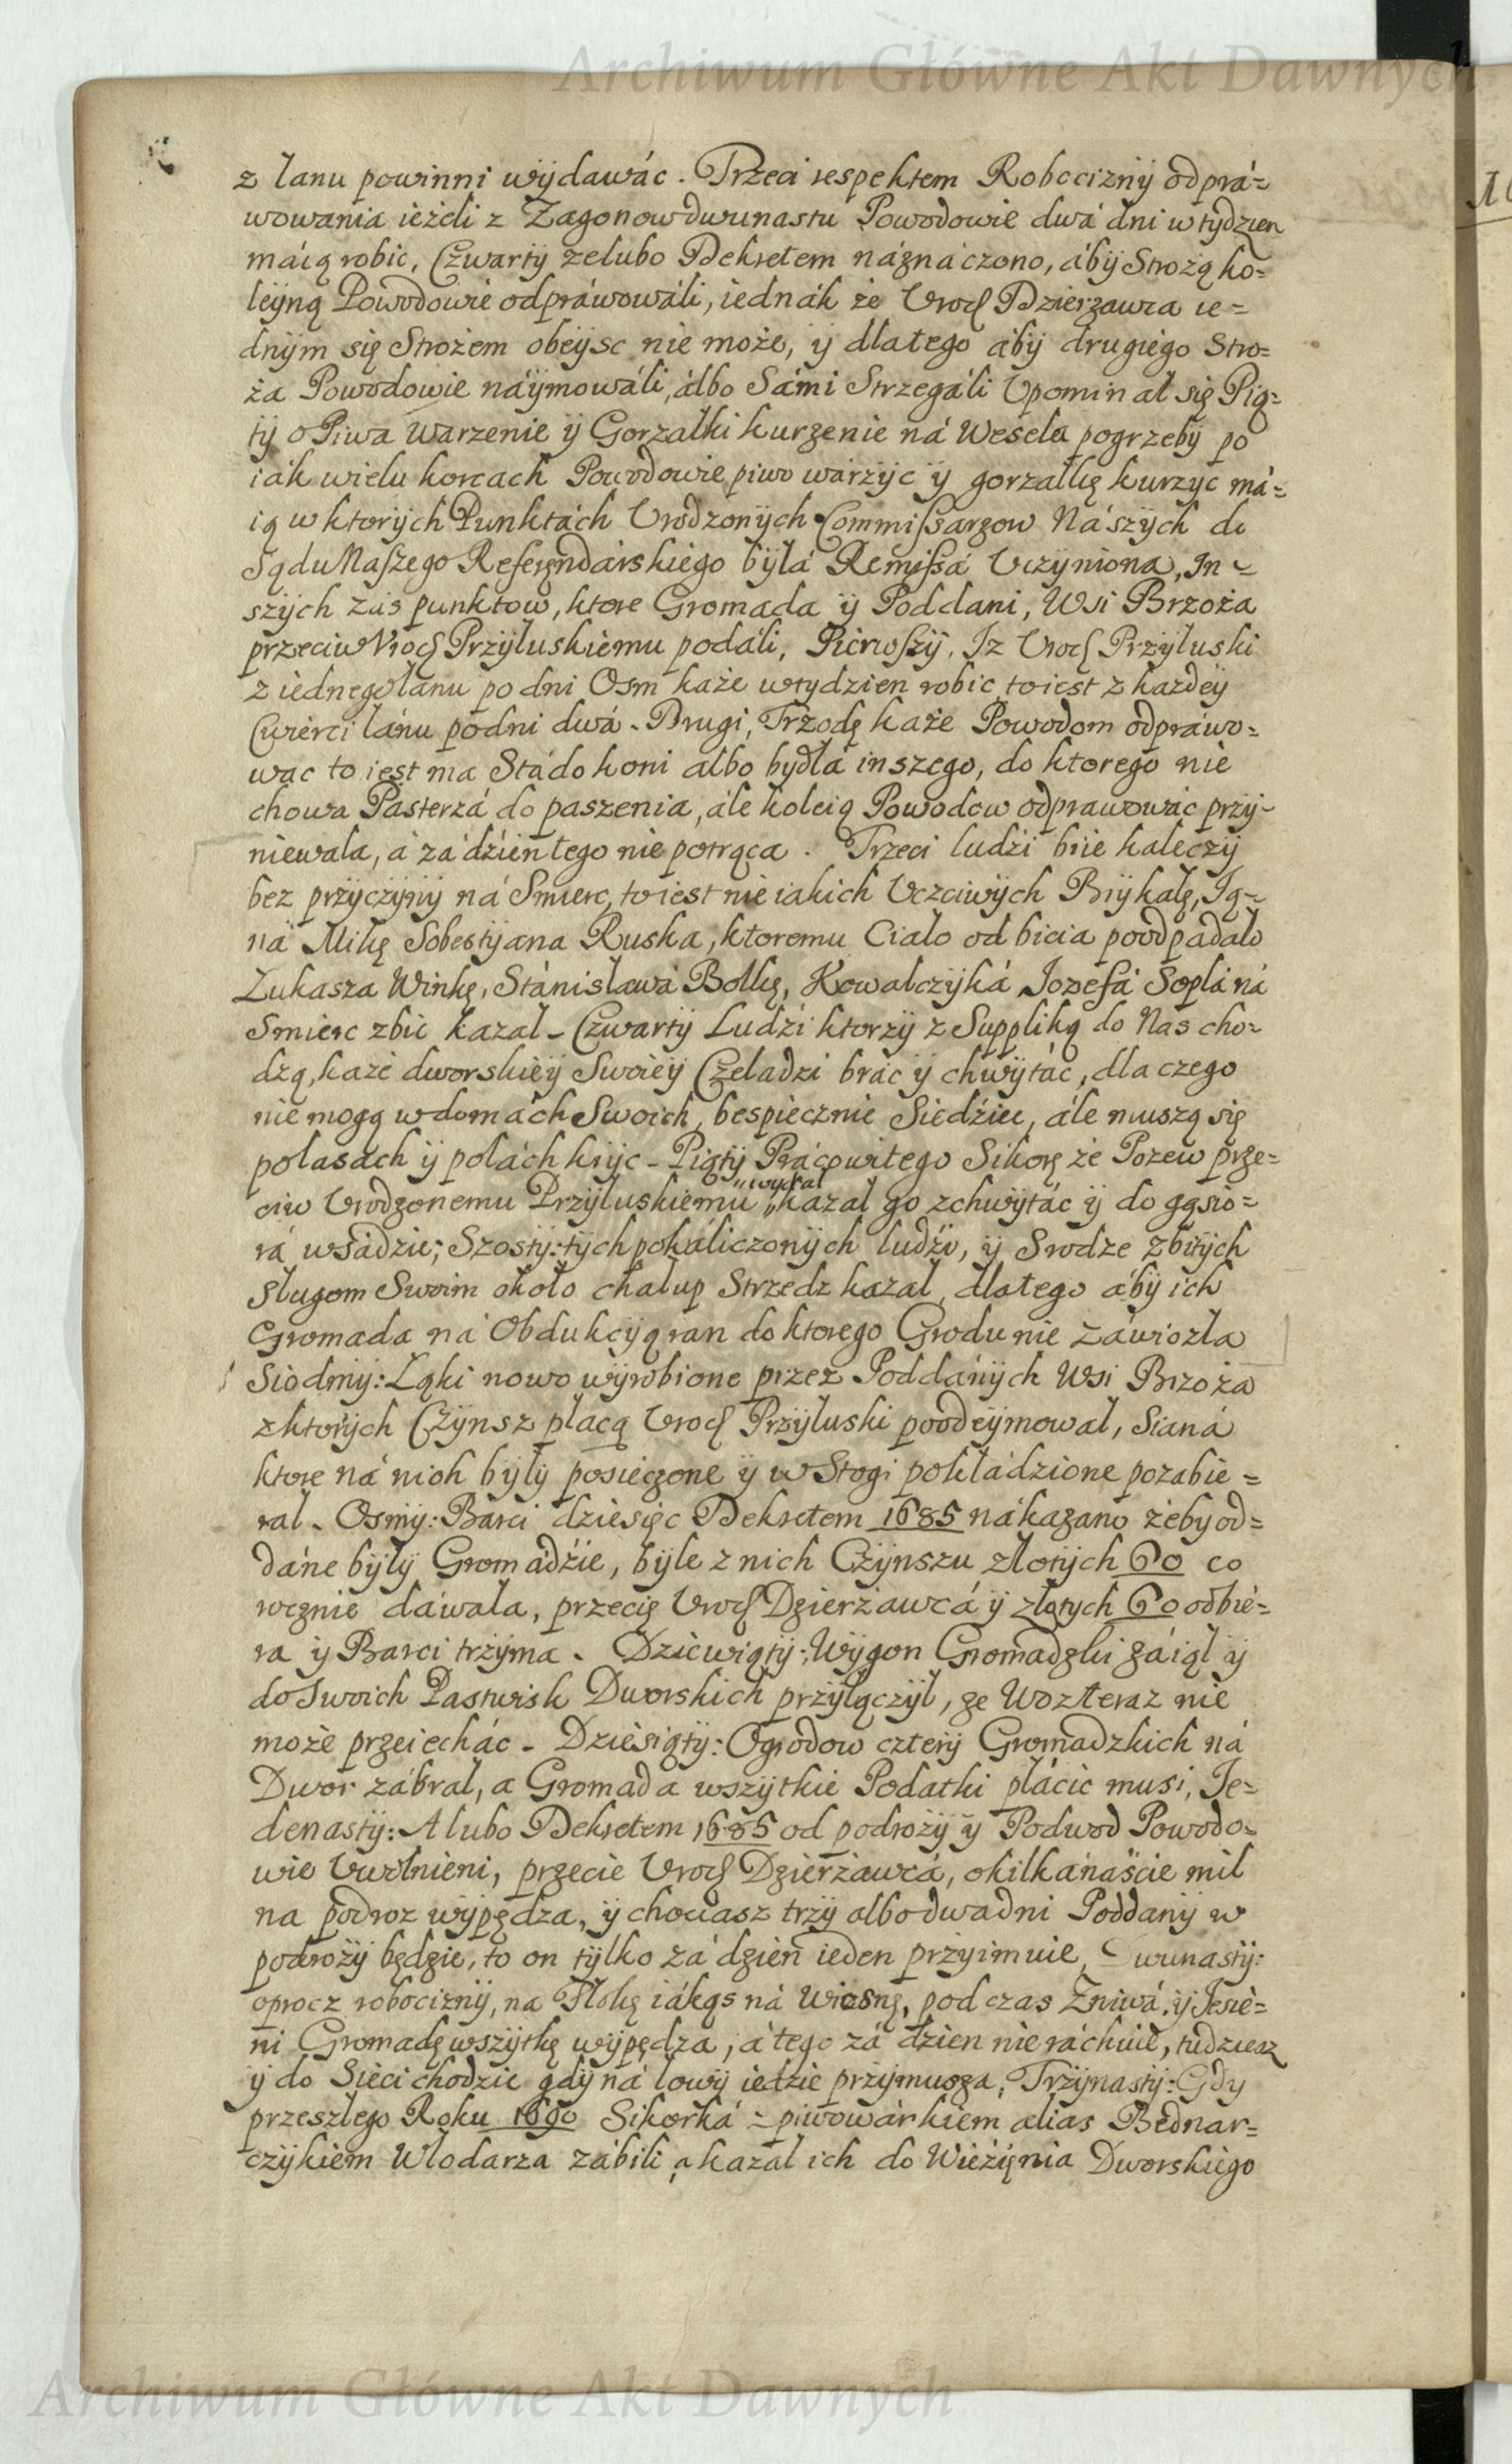 Archiwum Główne Akt Dawnych
z lanu powinni wÿdawáć. Trzeci respektem Robociznÿ odprá=
wowania ieżeli z Zagonow dwunastu Powodowie dwá dni w tydzien
máią robic, Czwartÿ zelubo Dekretem náznáczono, ábÿ Strożą ko=
leÿną Powodowie odpráwowáli, iednák że Urod Dzierzawca ie=
dnÿm się Strożem obeÿsc nie może, ÿ dlatego ábÿ drugiego Stro=
ża Powodowie náÿmowáli, álbo Sámi Strzegáli Upominał się Pią=
tÿ o Piwa warzenie ÿ Gorzałki kurzenie ná Wesela pogrzebÿ po
iák wielu korcach Powodowie piwo warzÿc ÿ gorzałkę kurzÿc má=
ią w ktorÿch Punktách Urodzonÿch Commissarzow Nászÿch do
Sądu Naszego Referendárskiego bÿlá Remissá Uczÿniona, In=
szÿch zás punktow, ktore Gromada ÿ Poddani, Wsi Brzoża
przeciw Urod Przÿłuskiemu podáli, Pierwszÿ, Iz Urod Przÿłuski
z iednego łanu po dni Osm każe w tydzien robic to iest z kazdeÿ
Cwierci lánu po dni dwá. Drugi, Trzodę każe Powodom odpráwo=
wac to iest ma Stádo koni albo bydlá inszego, do ktorego nie
chowa Pasterzá do paszenia, ále koleią Powodow odprawowác przÿ=
niewala, á zá dzień tego nie potrąca. Trzeci ludzi biie kaleczÿ
bez przÿczÿnÿ ná Smierc, to iest nieiakich Uczciwÿch Bÿkałę, Ig=
ná Mikę Sobestÿana Ruska, ktoremu Ciało od bicia poodpadało
Łukasza Winkę, Stánisława Bolkę, Kowalczÿká Jozefá Soplá ná
Smierc zbic kazał. Czwartÿ Ludzi ktorzÿ z Suppliką do Nas cho=
dzą, każe dworskieÿ Swoieÿ Czeladzi brac ÿ chwÿtác, dla czego
nie mogą w domách Swoich, bespiecznie Siedźiec, ále muszą się
po lasach ÿ polách krÿc. Piątÿ Prácowitego Sikorę że Pozew prze=
wydał
ciw Urodzonemu Przÿłuskiemu kazał go zchwÿtác ÿ do gąsio=
rá wsadzic; Szostÿ: tÿch pokáliczonÿch ludźi, ÿ Srodze zbitÿch
sługom Swoim około chałup Strzedz kazał, dlatego ábÿ ich
Gromada ná Obdukcÿą ran do ktorego Grodu nie záwiozła
Siodmÿ: Łąki nowo wÿrobione przez Poddánÿch Wsi Brzoża
z ktorÿch Czÿnsz płacą Urod Przÿłuski poodeÿmował, Sianá
ktore ná nich bÿłÿ posieczone ÿ w Stogi pokładzione pozabie=
rał. Osmÿ: Barci dziesięc Dekretem 1685 nákazano żebÿ od=
dáne bÿłÿ Gromadźie, bÿle z nich Czÿnszu złotÿch 60 co
rocznie dáwała, przecię Urod Dzierżawcá ÿ złotych 60 odbie=
ra ÿ Barci trzÿma. Dziewiątÿ: Wÿgon Gromadzki záiął ÿ
do Swoich Pastwisk Dworskich przÿłączÿł, ze Woz teraz nie
może przeiechác. Dziesiątÿ: Ogrodow czterÿ Gromadzkich ná
Dwor zábrał, a Gromada wszÿtkie Podatki płácic musi, Je=
denastÿ: A lubo Dekretem 1685 od podrożÿ ÿ Podwod Powodo=
wie Uwolnieni, przecie Urod Dzierżawcá, o kilkánaście mil
na podroz wÿpędza, ÿ chociasz trzÿ albo dwa dni Poddanÿ w
podrożÿ będzie, to on tÿlko zá dzień ieden przÿimuie, Dwunastÿ:
oprocz robociznÿ, na Tłokę iákąs ná Wiosnę, pod czas Żniwá, ÿ Jesie=
ni Gromadę wszÿtkę wÿpędza, á tego zá dzien nie ráchuie, tudziesz
ÿ do Sieci chodzic gdÿ ná łowÿ iedzie przÿmusza, Trzÿnastÿ: Gdy
przeszłego Roku 1690 Sikorká z piwowárkiem alias Bednar=
czÿkiem Włodarza zábili, a kazał ich do Więzięnia Dworskiego
Archiwum Główne Akt Dawnych